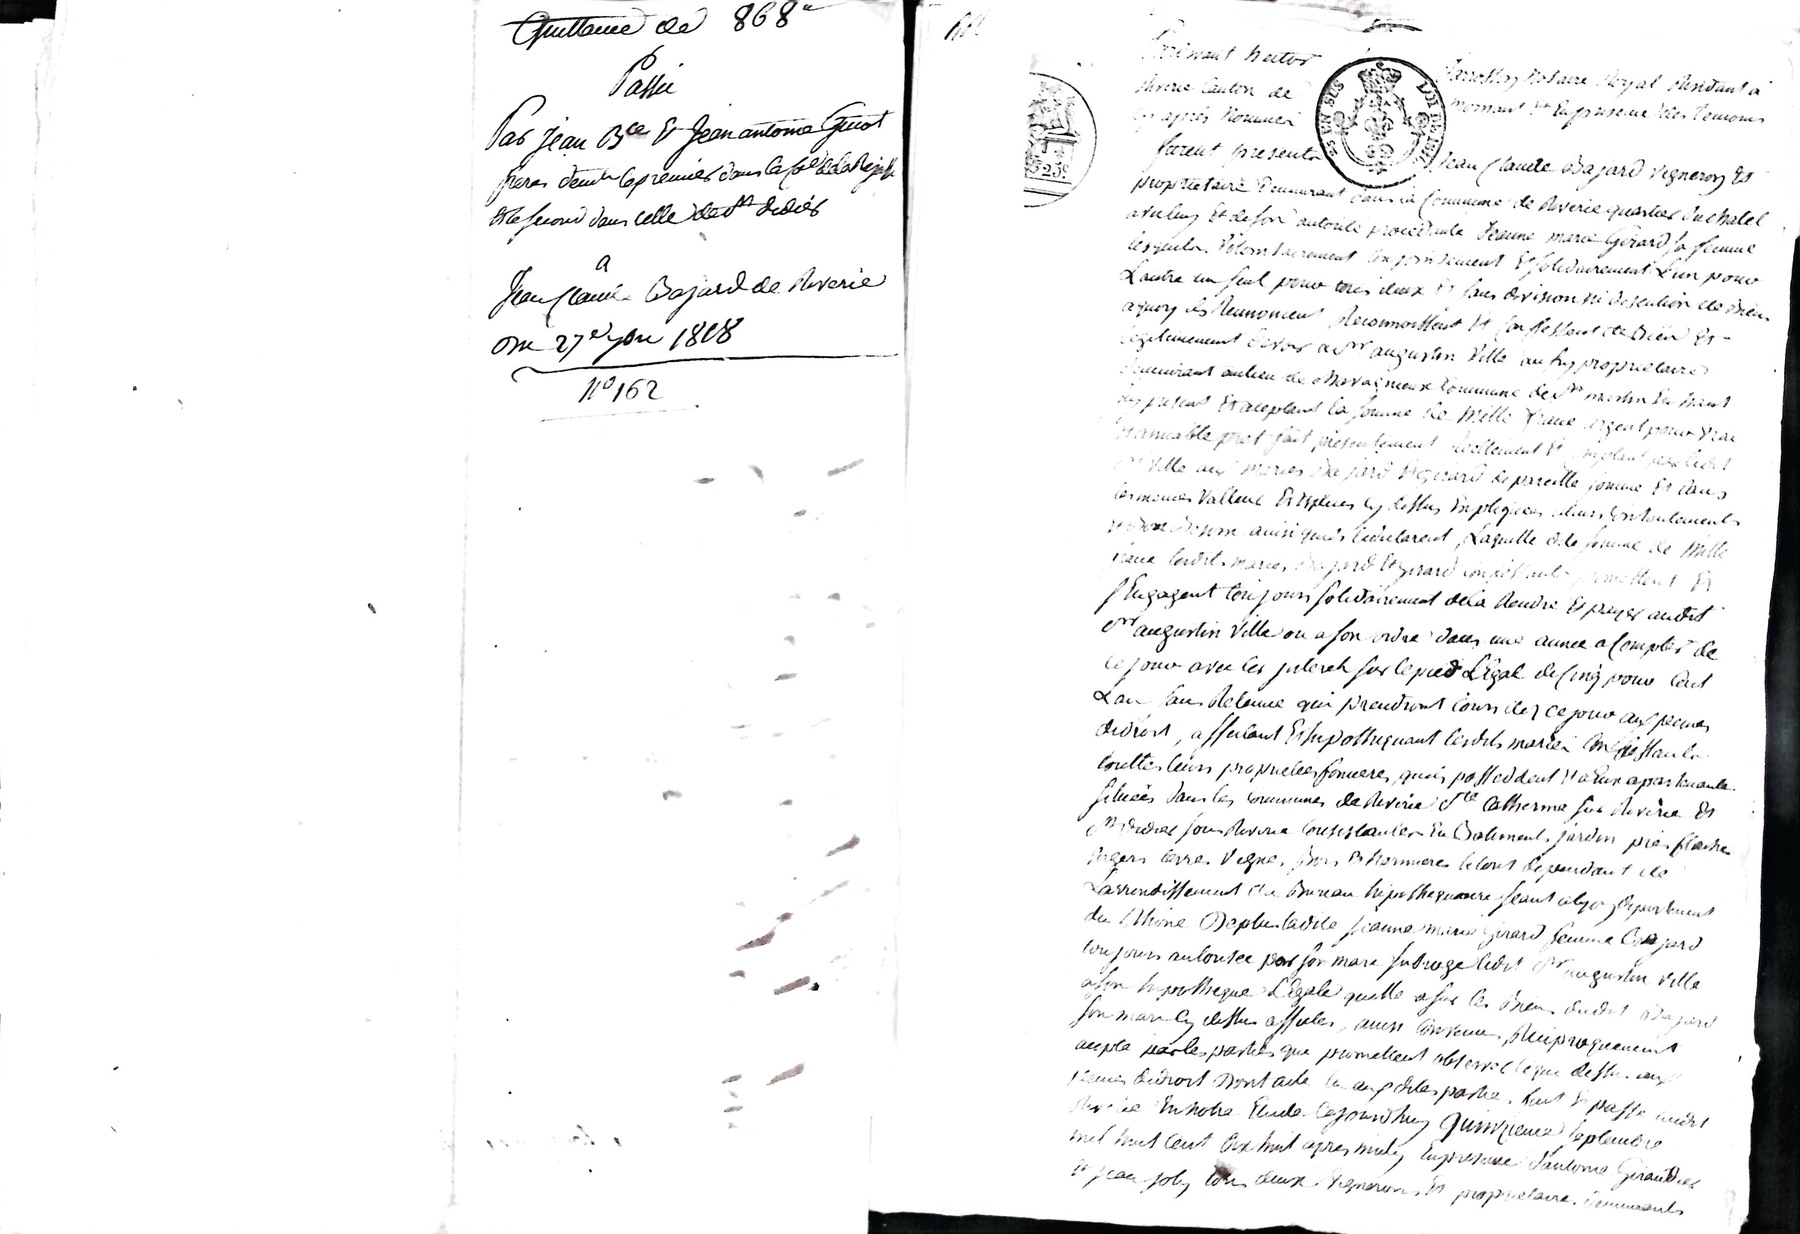 Quittance de 868
Passée
Par Jean Bte Et Jean antoine Guiot
freres demt le premier dans la
Et le second dans celle de St didier
a
Jean Claude Bajard de Riverie
Du 27e 1818
N° 162
Pardevant hector
notaire Royal Residant a
Riverie Canton de mornant Et En presence des temoins
cy après Nommés
furent presents Jean Claude Bajard Vigneron Et
proprietaire demeurant dans la Commune de Riverie quartier du chatel
Et de son autorité procedante Jeanne marie Girard sa femme
lesquels Volontairement conjointement Et solidairement L'un pour
L'autre un seul pour tous deux Et sans division ni discution de biens
a quoy ils Renoncent Reconnoissent Et Confessent de bien Et
legitimement devoir a Sr augustin Ville proprietaire
demeurant au lieu de Commune de St martin En haut
icy present Et acceptant la somme de Mille francs argent pour vrai
Et amiable pret fait presentement Reellement Et comptant par ledit
Sr Ville aux maries Bajard Et Girard de pareille somme Et dans
les memes Valleurs Et Especes cy dessus Expliquées
ainsi qu'ils le déclarent, Laquelle dite somme de Mille
francs lesdits maries Bajard Et Girard promettent Et
s'Engagent toujours solidairement de la Rendre Et payer audit
Sr augustin Ville ou a son ordre dans une année a Compter de
ce jour avec les interets sur le pied Légal de Cinq pour Cent
L'an sans Retenue qui prendront cours dez ce jour aux peines
de droit, affectant Et hipothequant lesdits mariés
touttes leurs proprietées foncieres qu'ils possedent Et a Eux apartenantes
situées dans les communes de Riverie Ste Catherine sur Riverie Et
St didier sous Riverie Consistantes En Batiments jardin prés
vergers terres Vignes, bois Et hermieres le tout dependant de
L'arrondissement du Bureau hipothequaire séant a lyon departement
du Rhône De plus ladite Jeanne marie Girard femme Bajard
toujours autorisée par son mary subroge ledit Sr augustin Ville
a son hipotheque Légale quelle a sur les biens dudit Bajard
son mary cy dessus affectés, ainsi Convenu Reciproquement
accepté par les parties que promettent observer ce que dessus aux
peines de droit Dont acte lu auxdites parties, fait Et passé audit
Riverie En notre Etude Cejourdhuy Quinzieme Septembre
mil huit Cent dix huit apres midy En presence d'antoine Giraudier
Et jean joly tous deux Vignerons Et proprietaires demeurants